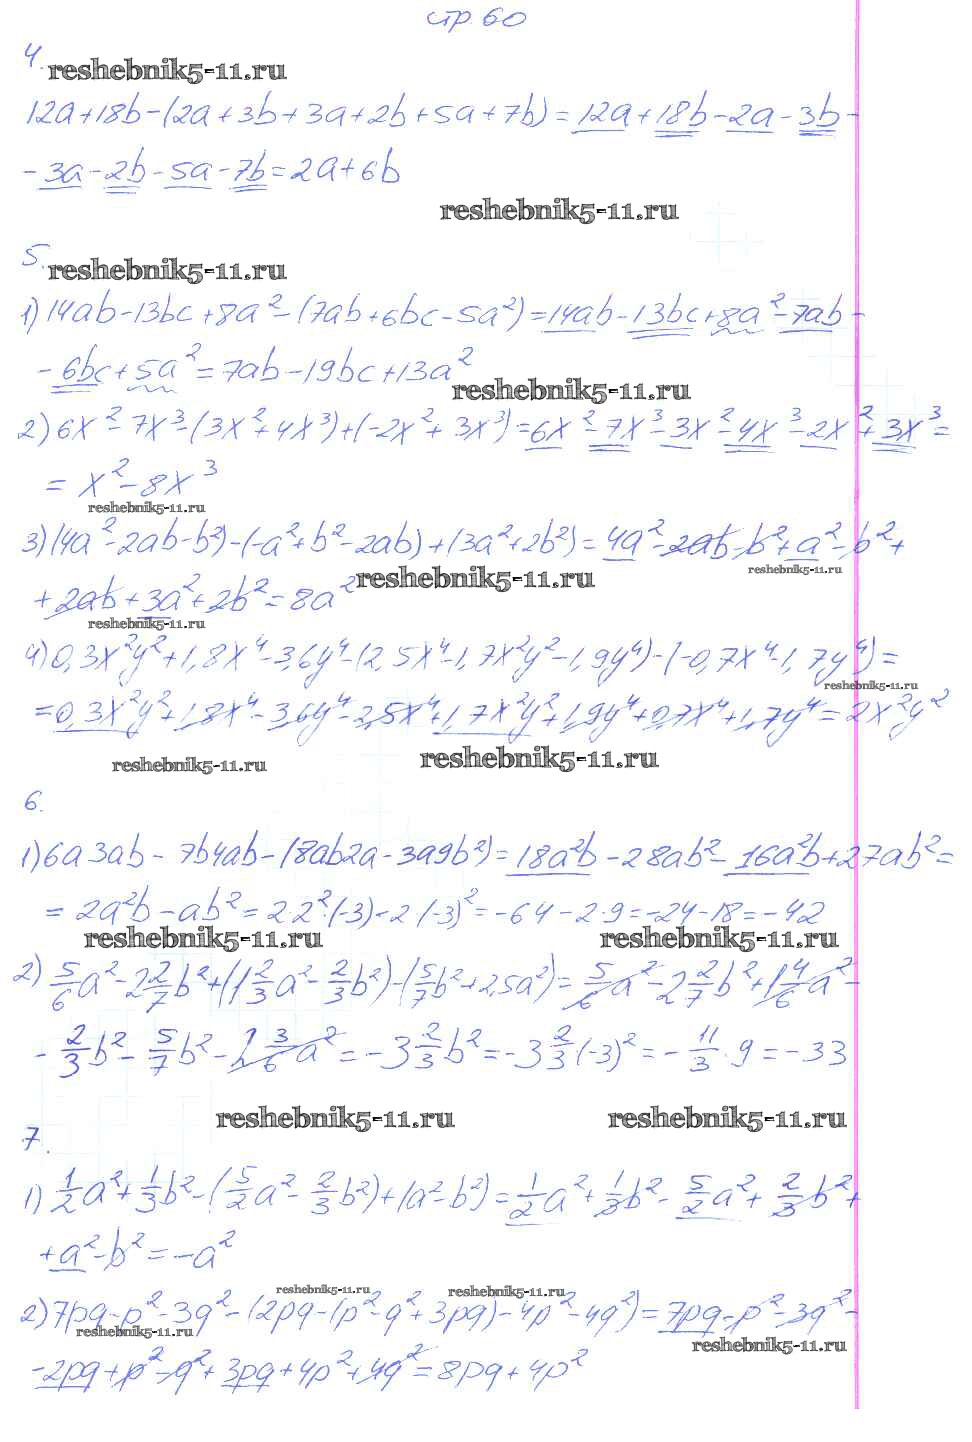 стр. 60
4. reshebnik5-11.ru
12a+18b-(2a+3b+3a+2b+5a+7b)=12a+18b-2a-3b-
-3a-2b-5a-7b=2a+6b
reshebnik5-11.ru
5. reshebnik5-11.ru
1) 14ab-13bc+8a²-(7ab+6bc-5a²)=14ab-13bc+8a²-7ab-
-6bc+5a²=7ab-19bc+13a²
reshebnik5-11.ru
2) 6x²-7x³-(3x²+4x³)+(-2x²+3x³)=6x²-7x³-3x²-4x³-2x²+3x³=
= x²-8x³
reshebnik5-11.ru
3) (4a²-2ab-b²)-(-a²+b²-2ab)+(3a²+2b²)=4a²-2ab-b²+a²-b²+
reshebnik5-11.ru reshebnik5-11.ru
+2ab+3a²+2b²=8a²
reshebnik5-11.ru
4) 0,3x²y²+1,8x⁴-3,6y⁴-(2,5x⁴-1,7x²y²-1,9y⁴)-(-0,7x⁴-1,7y⁴)=
reshebnik5-11.ru
=0,3x²y²+1,8x⁴-3,6y⁴-2,5x⁴+1,7x²y²+1,9y⁴+0,7x⁴+1,7y⁴=2x²y²
reshebnik5-11.ru reshebnik5-11.ru
6.
1) 6a3ab-7b4ab-(8ab2a-3a9b²)=18a²b-28ab²-16a²b+27ab²=
= 2a²b-ab²=2·2²·(-3)-2(-3)²=-64-2·9=-24-18=-42
reshebnik5-11.ru reshebnik5-11.ru
2) 5/6a²-2 2/7b²+(1 2/3a²-2/3b²)-(5/7b²+2,5a²)=5/6a²-2 2/7b²+1 4/6a²-
-2/3b²-5/7b²-2 3/6a²=-3 2/3b²=-3 2/3(-3)²=-11/3·9=-33
reshebnik5-11.ru reshebnik5-11.ru
7.
1) 1/2a²+1/3b²-(5/2a²-2/3b²)+(a²-b²)=1/2a²+1/3b²-5/2a²+2/3b²+
+a²-b²=-a²
reshebnik5-11.ru reshebnik5-11.ru
2) 7pq-p²-3q²-(2pq-(p²-q²+3pq)-4p²-4q²)=7pq-p²-3q²-
reshebnik5-11.ru reshebnik5-11.ru
-2pq+p²-q²+3pq+4p²+4q²=8pq+4p²